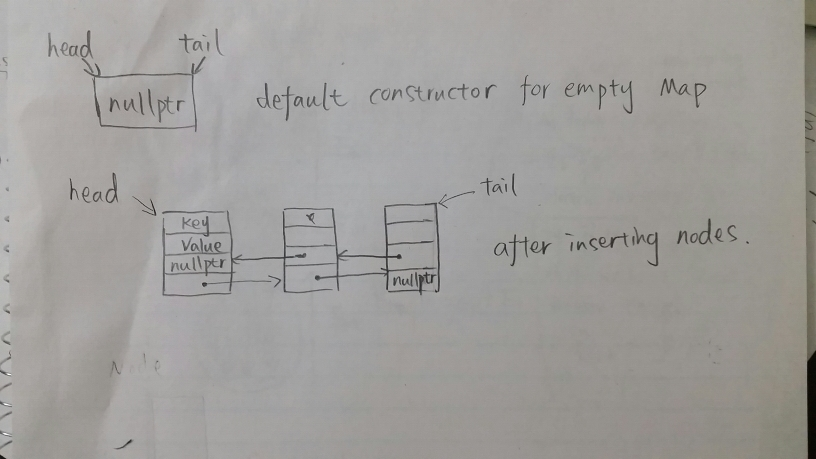 head tail
nullptr default constructor for empty Map
head tail
key
value
nullptr
after inserting nodes.
nullptr